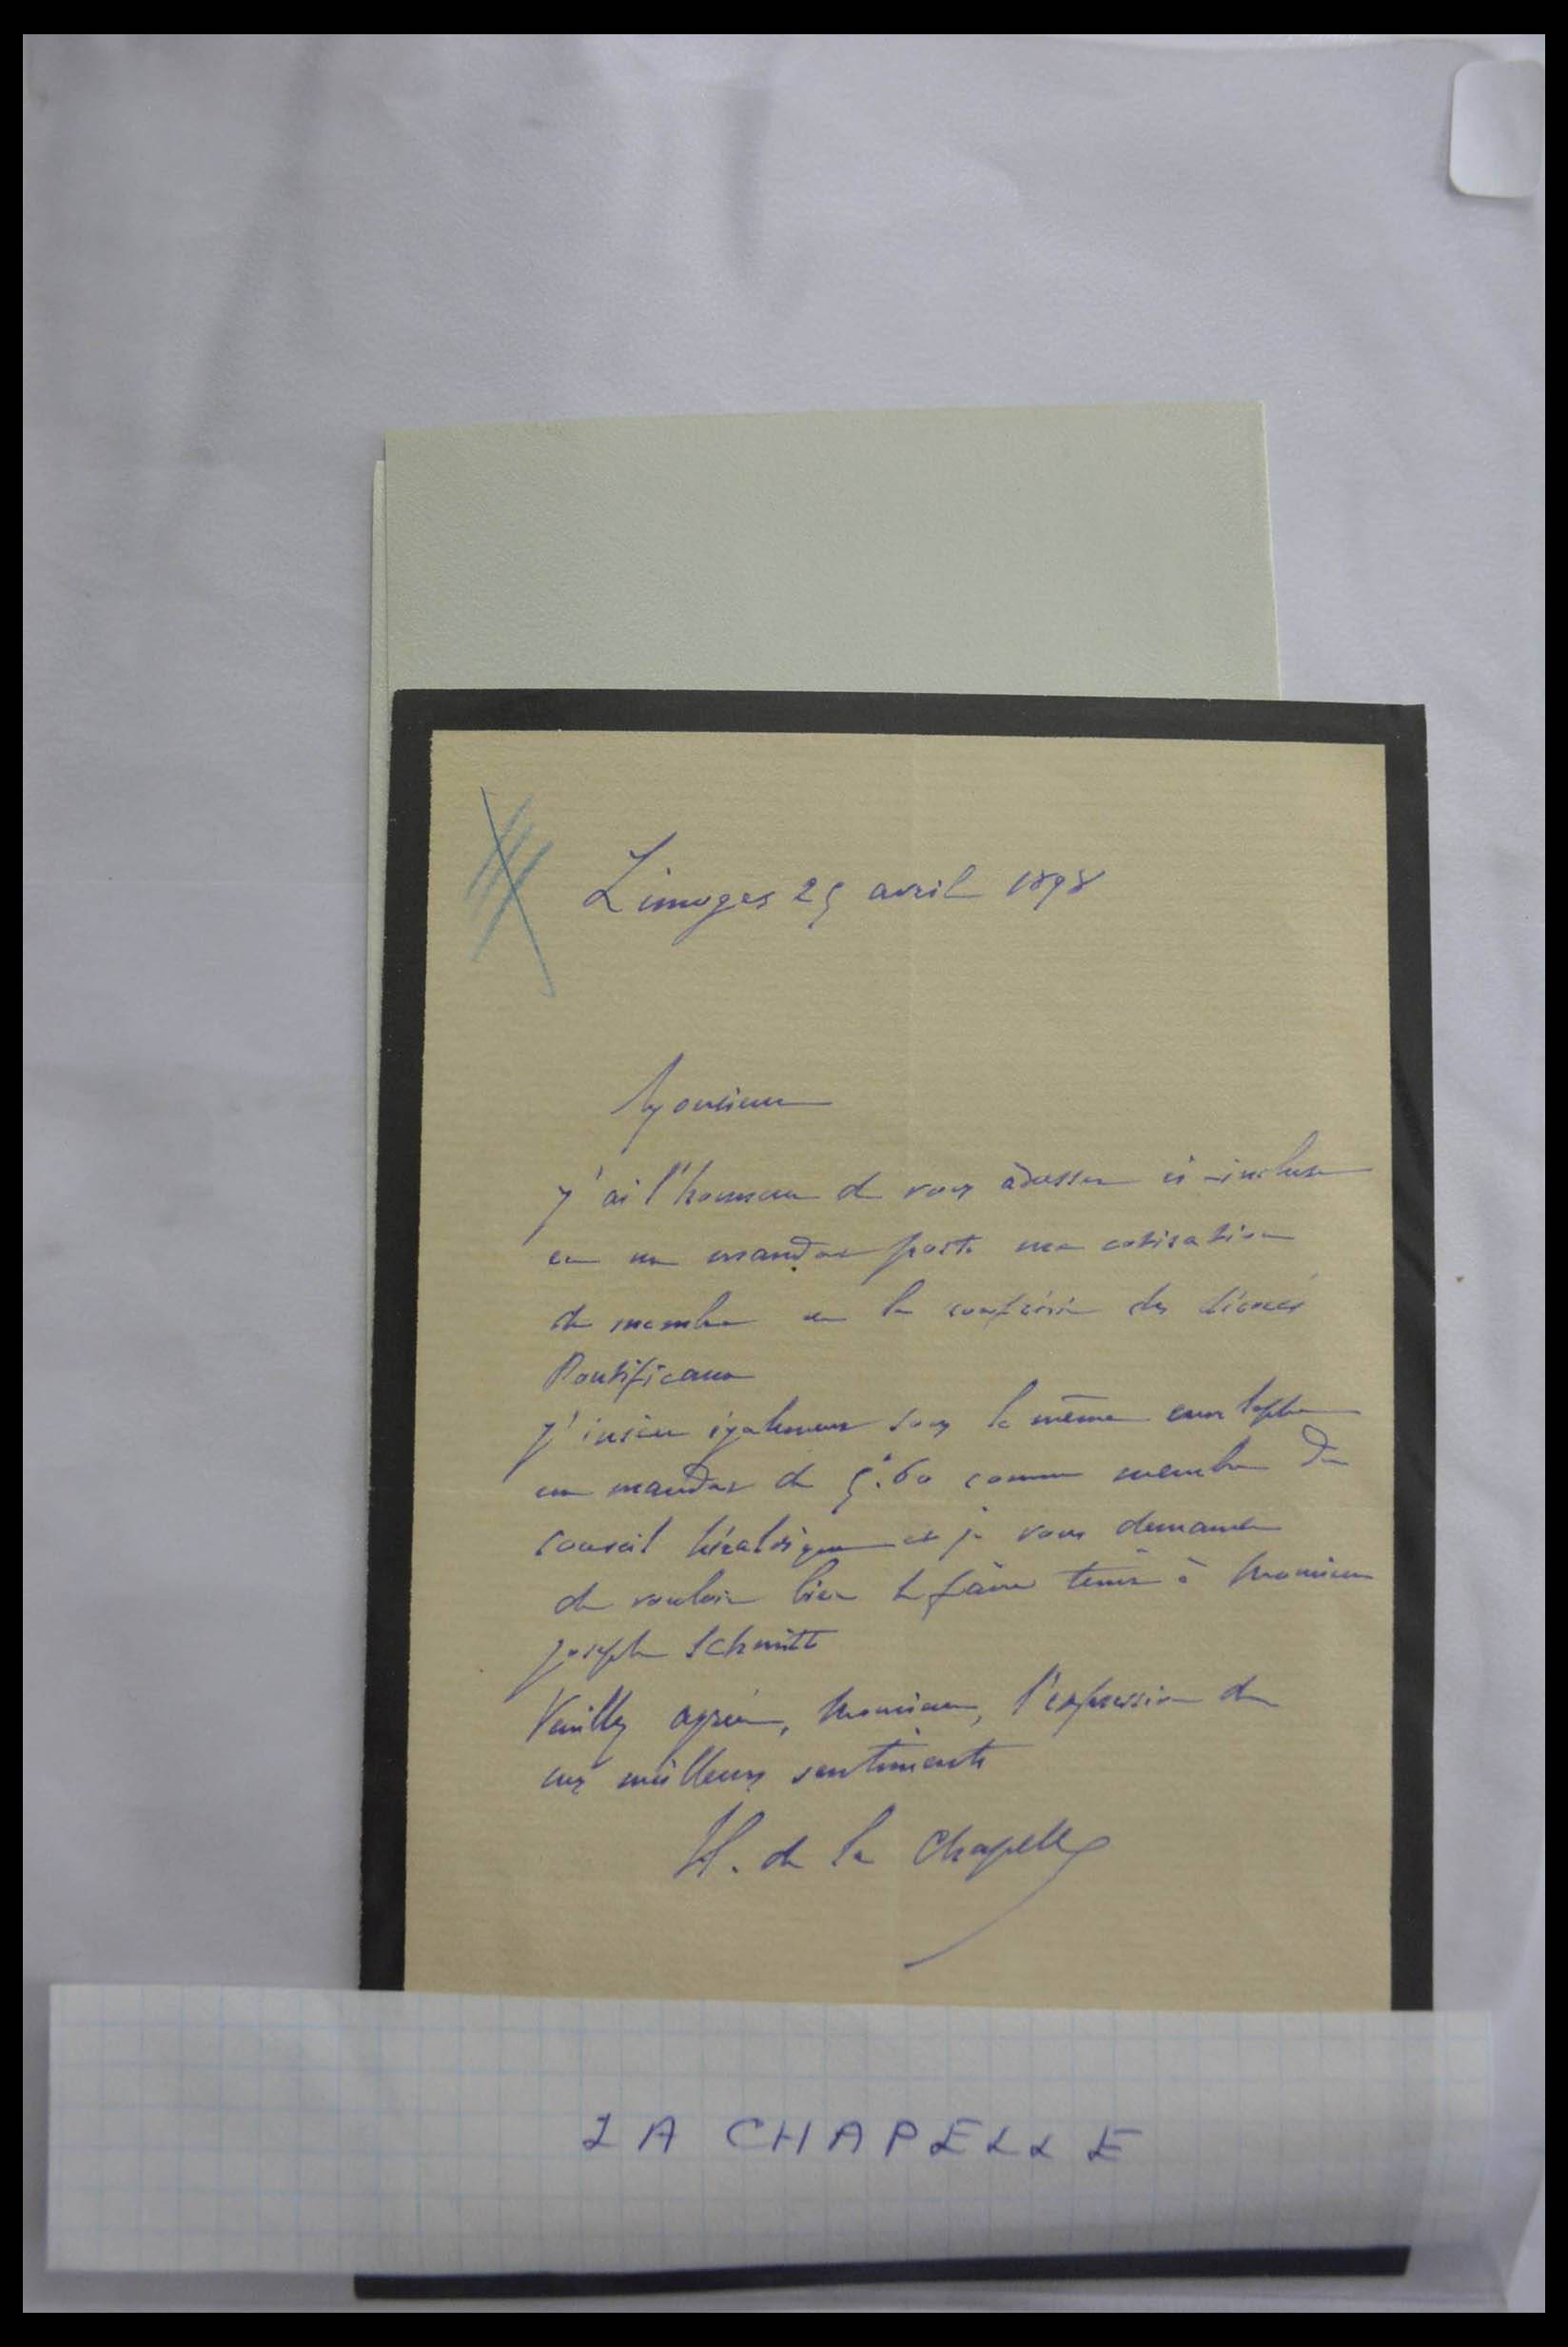 Limoges 25 avril 1898
Monsieur
J'ai l'honneur de vous adresser ci-incluse
en un mandat poste ma cotisation
de membre de la confrérie des
Pontificaux
J'insère également sous la même enveloppe
un mandat de 5f.60 comme membre du
conseil héraldique et je vous demande
de vouloir bien le faire tenir à Monsieur
Joseph Schmitt
Veuillez agréer, Monsieur, l'expression de
mes meilleurs sentiments
H. de la Chapelle
LA CHAPELLE